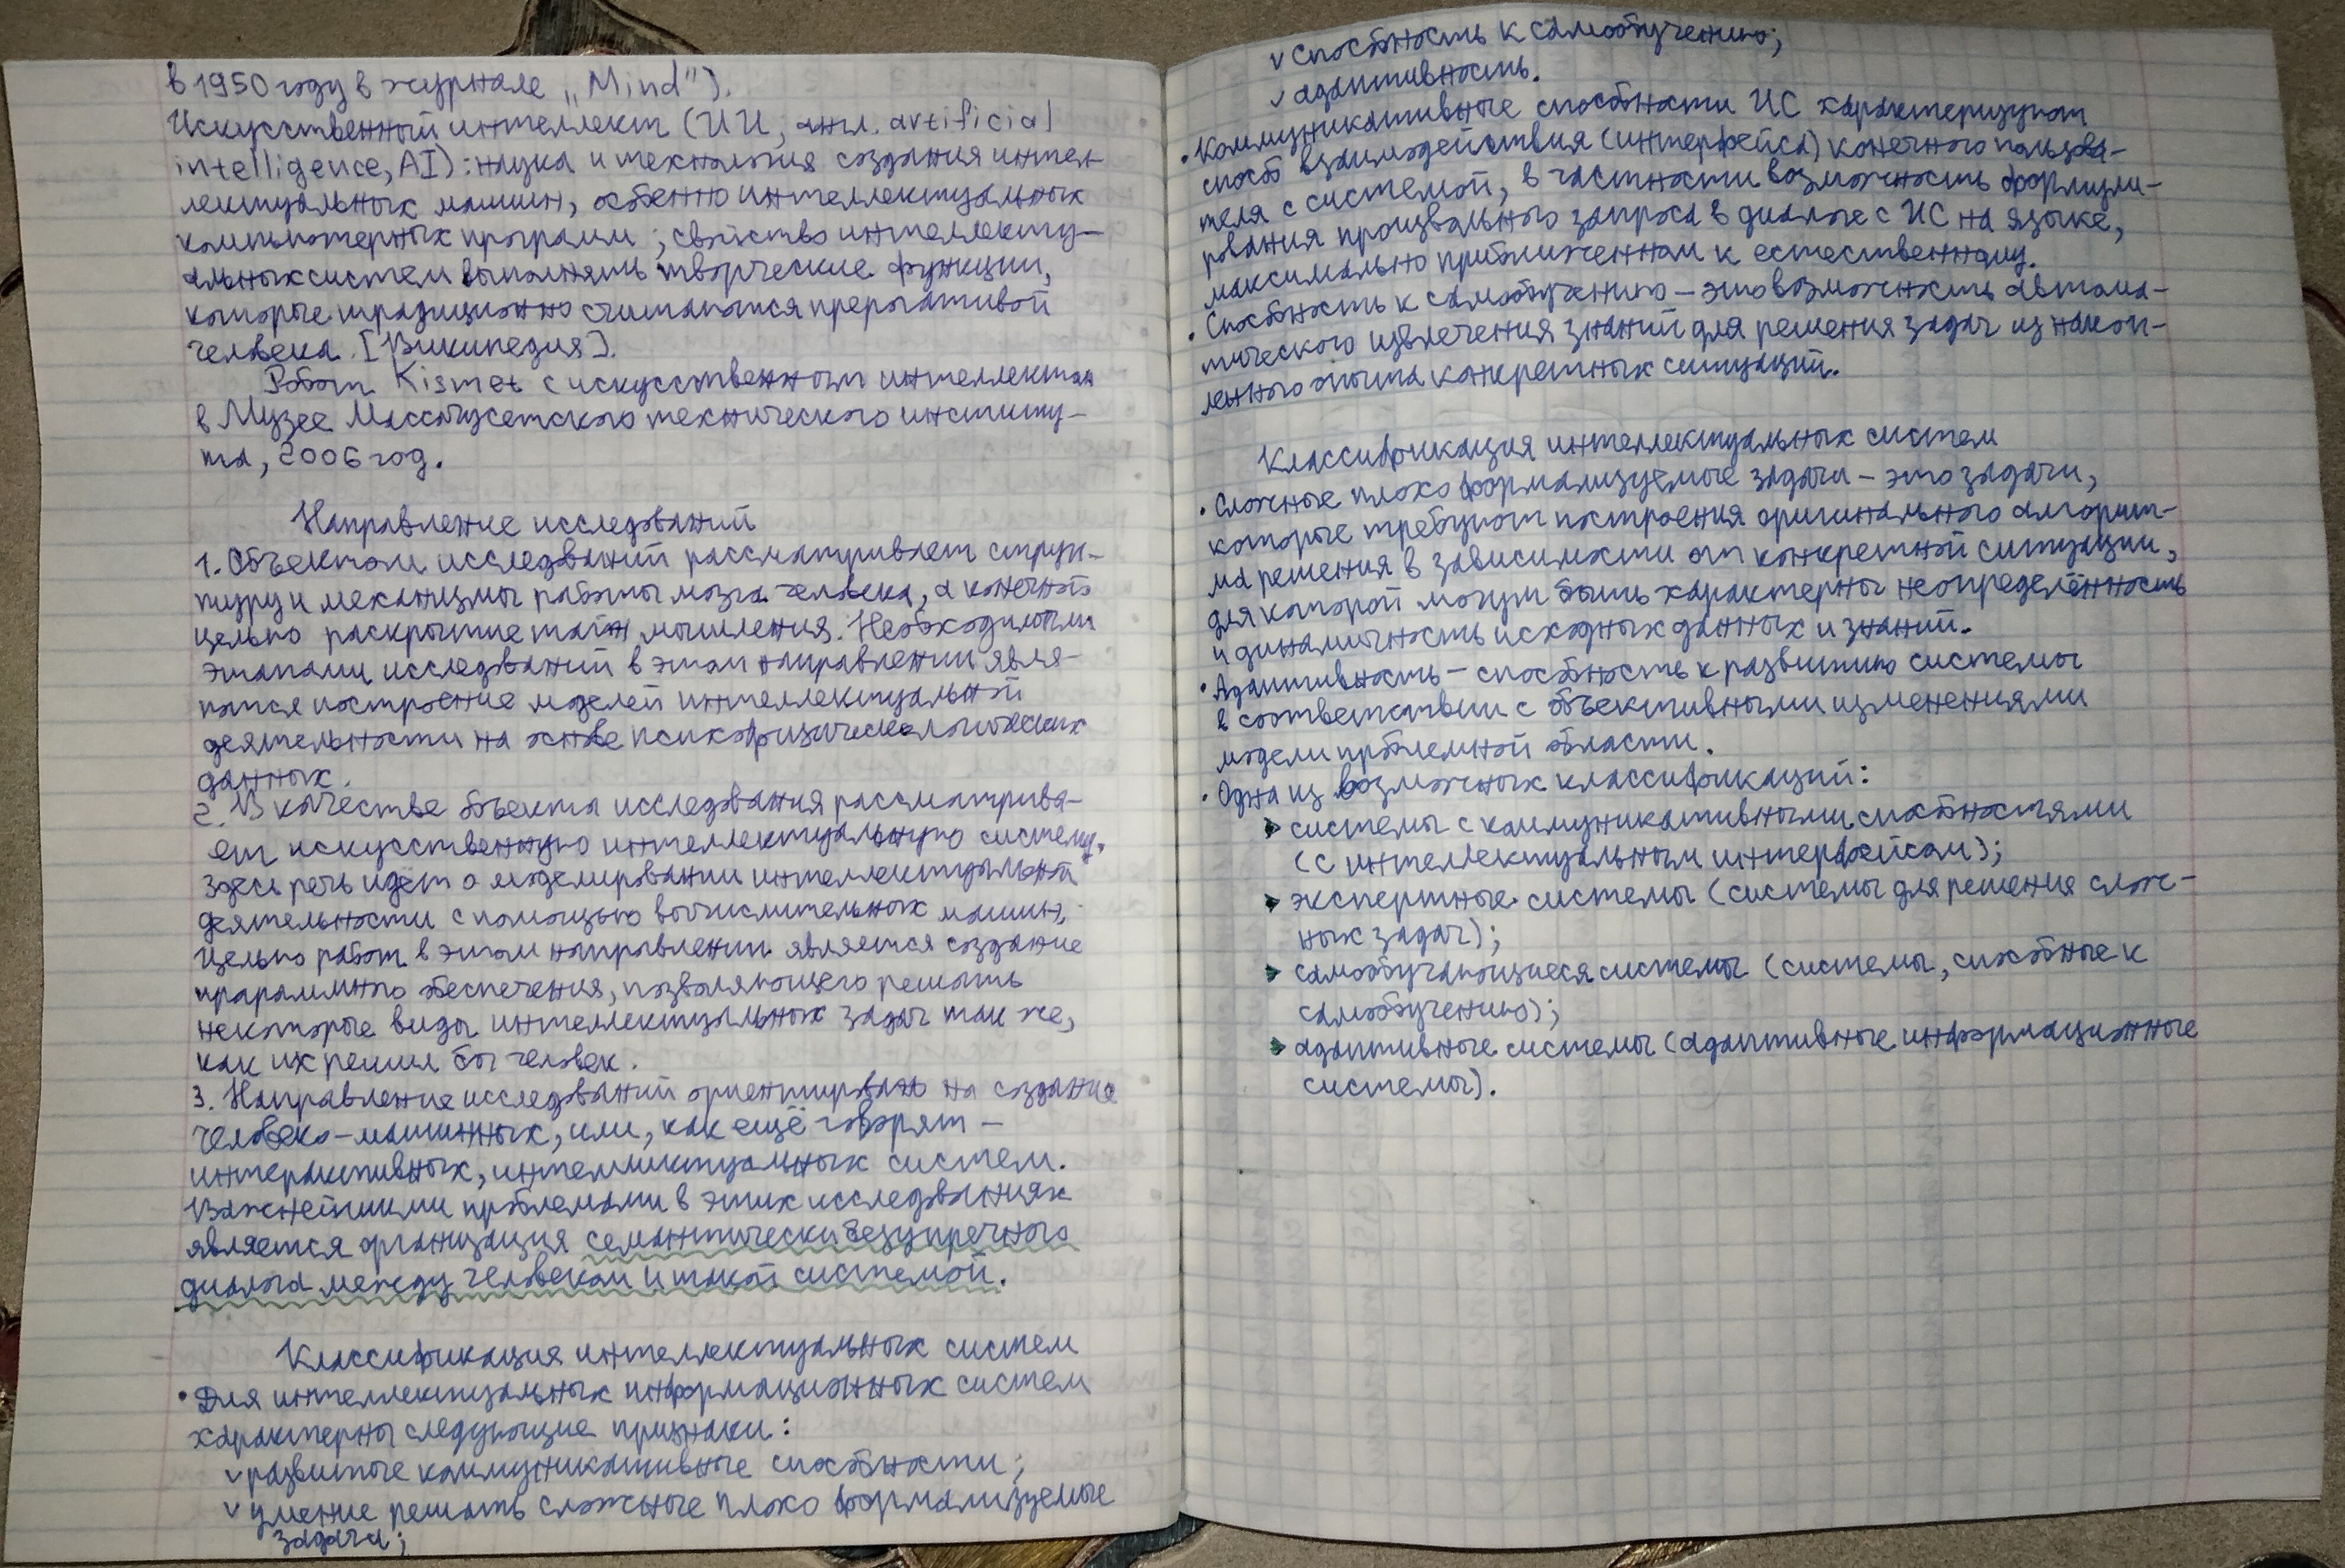 в 1950 году в журнале „Mind").
Искусственный интеллект (ИИ, англ. artificial
intelligence, AI): наука и технология создания интел-
лектуальных машин, особенно интеллектуальных
компьютерных программ; свойство интеллекту-
альных систем выполнять творческие функции,
которые традиционно считаются прерогативой
человека [Википедия].
Робот Kismet с искусственным интеллектом
в Музее Массачусетского технического институ-
та, 2006 год.
Направление исследований
1. Объектом исследований рассматривает струк-
туру и механизмы работы мозга человека, а конечной
целью раскрытие тайн мышления. Необходимыми
этапами исследований в этом направлении явля-
ются построение моделей интеллектуальной
деятельности на основе психофизиологических
данных.
2. В качестве объекта исследования рассматрива-
ет искусственную интеллектуальную систему.
Здесь речь идёт о моделировании интеллектуальной
деятельности с помощью вычислительных машин.
Целью работ в этом направлении является создание
программного обеспечения, позволяющего решать
некоторые виды интеллектуальных задач так же,
как их решил бы человек.
3. Направление исследований ориентировано на создание
человеко-машинных, или, как ещё говорят –
интерактивных, интеллектуальных систем.
Важнейшими проблемами в этих исследованиях
является организация семантически безупречного
диалога между человеком и такой системой.
Классификация интеллектуальных систем
• Для интеллектуальных информационных систем
характерны следующие признаки:
v развитые коммуникативные способности;
v умение решать сложные плохо формализуемые
задачи;
v способность к самообучению;
v адаптивность.
• Коммуникативные способности ИС характеризуют
способ взаимодействия (интерфейса) конечного пользова-
теля с системой, в частности возможность формули-
рования произвольного запроса в диалоге с ИС на языке,
максимально приближенном к естественному.
• Способность к самообучению – это возможность автома-
тического извлечения знаний для решения задач из накоп-
ленного опыта конкретных ситуаций.
Классификация интеллектуальных систем
• Сложные плохо формализуемые задачи – это задачи,
которые требуют построения оригинального алгорит-
ма решения в зависимости от конкретной ситуации,
для которой могут быть характерны неопределённость
и динамичность исходных данных и знаний.
• Адаптивность – способность к развитию системы
в соответствии с объективными изменениями
модели проблемной области.
• Одна из возможных классификаций:
➤ системы с коммуникативными способностями
(с интеллектуальным интерфейсом);
➤ экспертные системы (системы для решения слож-
ных задач);
➤ самообучающиеся системы (системы, способные к
самообучению);
➤ адаптивные системы (адаптивные информационные
системы).